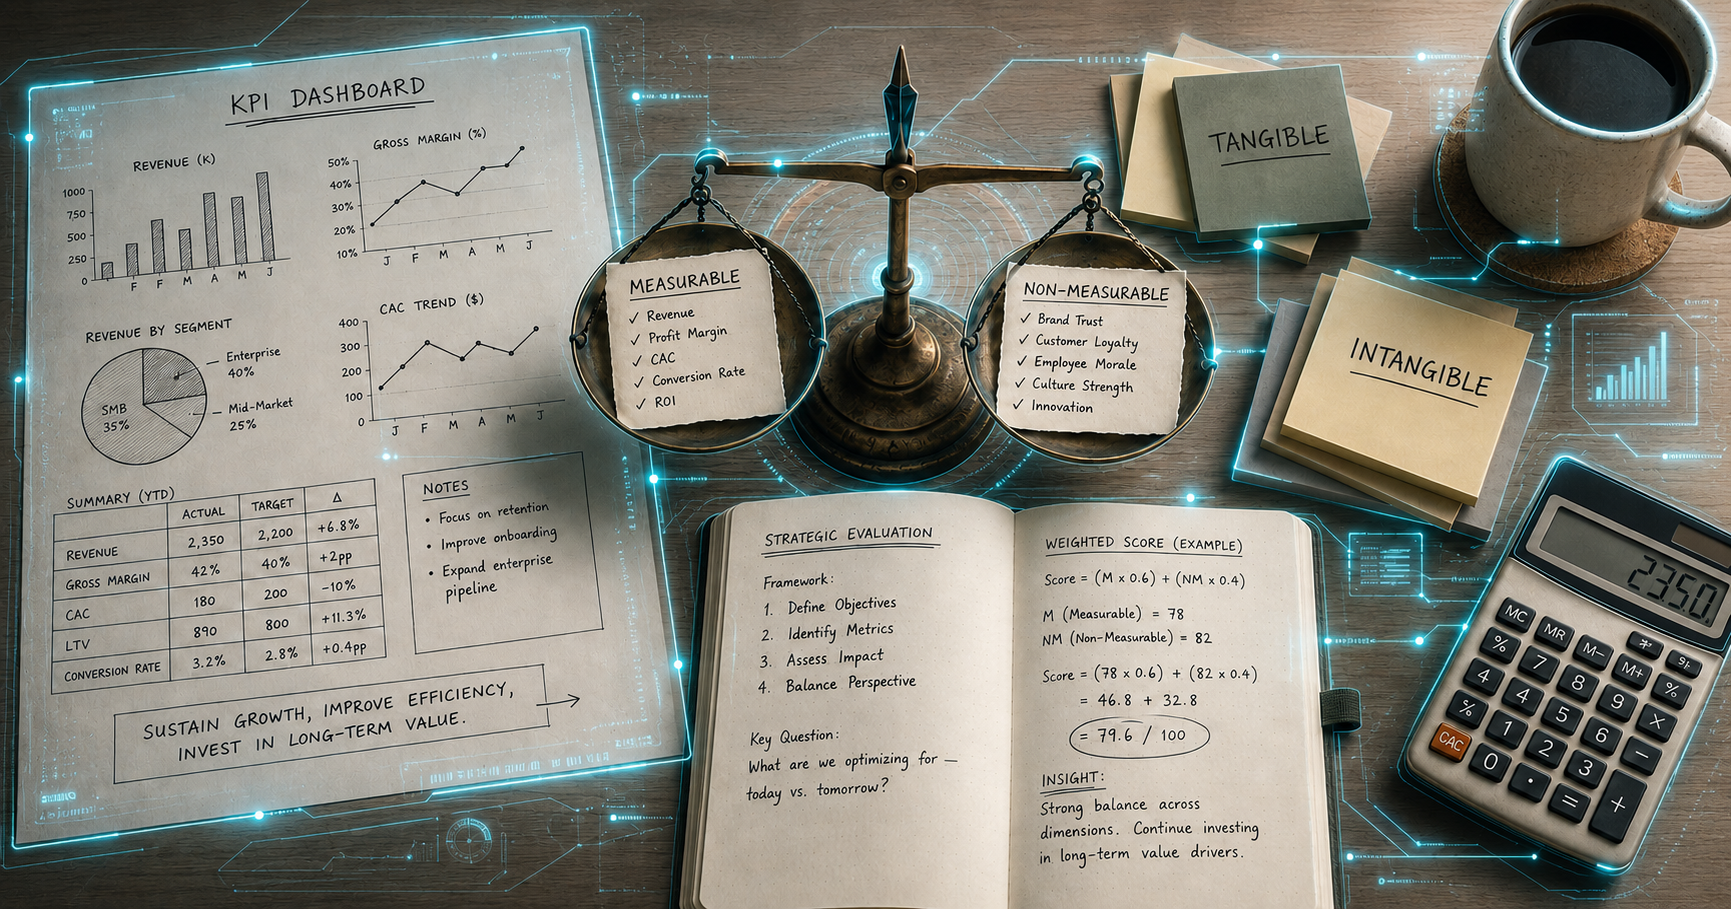 KPI DASHBOARD
REVENUE (K)
1000
750
500
250
0
F F M A M J
GROSS MARGIN (%)
50%
40%
30%
20%
10%
J F M A M J
REVENUE BY SEGMENT
Enterprise
40%
Mid-Market
25%
SMB
35%
CAC TREND ($)
400
300
200
100
0
J F M A M J
SUMMARY (YTD)
ACTUAL TARGET Δ
REVENUE 2,350 2,200 +6.8%
GROSS MARGIN 42% 40% +2pp
CAC 180 200 −10%
LTV 890 800 +11.3%
CONVERSION RATE 3.2% 2.8% +0.4pp
NOTES
• Focus on retention
• Improve onboarding
• Expand enterprise
pipeline
SUSTAIN GROWTH, IMPROVE EFFICIENCY,
INVEST IN LONG-TERM VALUE.
MEASURABLE
✓ Revenue
✓ Profit Margin
✓ CAC
✓ Conversion Rate
✓ ROI
NON-MEASURABLE
✓ Brand Trust
✓ Customer Loyalty
✓ Employee Morale
✓ Culture Strength
✓ Innovation
TANGIBLE
INTANGIBLE
STRATEGIC EVALUATION
Framework:
1. Define Objectives
2. Identify Metrics
3. Assess Impact
4. Balance Perspective
Key Question:
What are we optimizing for —
today vs. tomorrow?
WEIGHTED SCORE (EXAMPLE)
Score = (M x 0.6) + (NM x 0.4)
M (Measurable) = 78
NM (Non-Measurable) = 82
Score = (78 x 0.6) + (82 x 0.4)
= 46.8 + 32.8
= 79.6 / 100
INSIGHT:
Strong balance across
dimensions. Continue investing
in long-term value drivers.
2350
MC MR M− M+ %
% 7 8 9 ×
4 4 5 6 −
% 1 2 3 +
CAC 0 · =